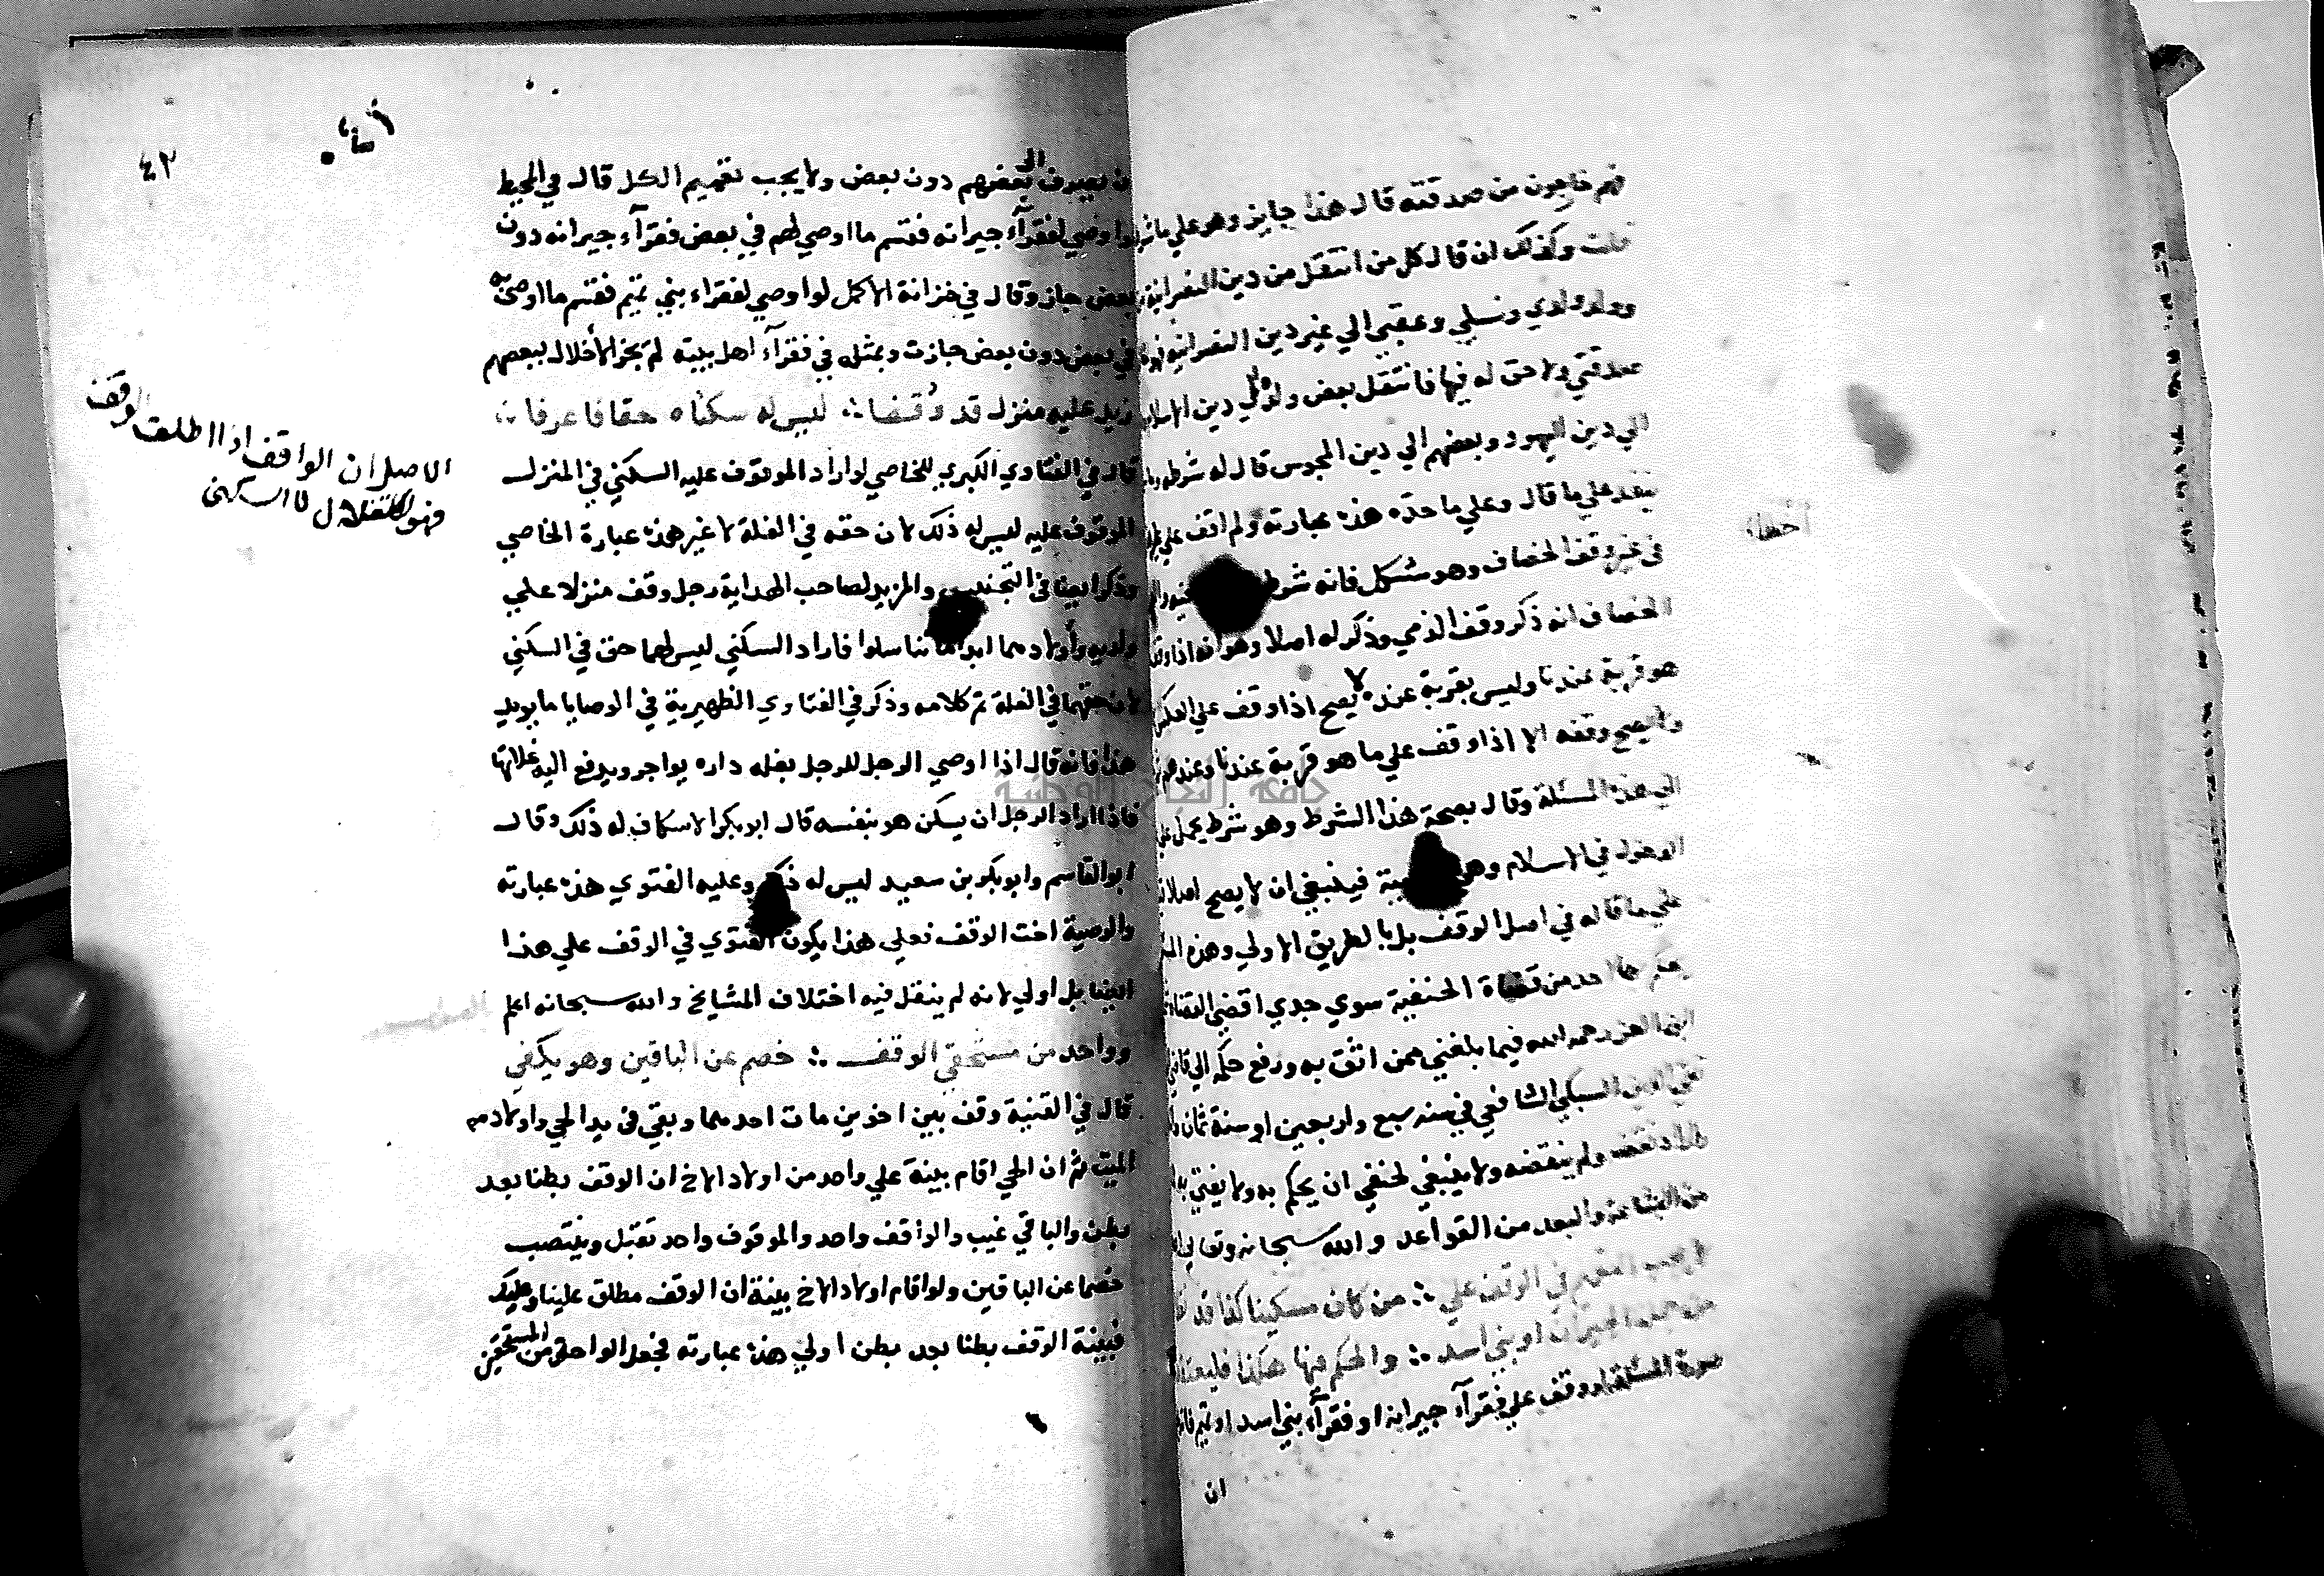 فهم خارجون من صدقته قال هذا جايز وهو علي ما شرط
قلت وكذلك ان قال كل من انتقل من دين النصرانية
وولد ولدي ونسلي وعقبي الي غير دين النصرانية
صدقتي ولا حق له فيها فانتقل بعض ولده الي دين الاسلام
الي دين اليهود وبعضهم الي دين المجوس قال له شرطه
ينفذ علي ما قال وعلي ما حده هذه عبارته ولم اقف علي
في غير وقف الخصاف وهو مشكل فانه شرط
الخصاف انه ذكر وقف الذمي وذكر له اصلا وهو انه اذا وقف
هو قربة عندنا وليس بقربة عنده لا يصح اذا وقف علي العكس
ولا يصح وقفه الا اذا وقف علي ما هو قربة عندنا وعندهم
الي هذه المسئلة وقال بصحة هذا الشرط وهو شرط
الدخول في الاسلام وهو فينبغي ان لا يصح اصلا
علي ما قاله في اصل الوقف بل بالطريق الاولي وهذه
يحكم بها احد من قضاة الحنفية سوي جدي اقضي القضاة
ابن العز رحمه الله فيما بلغني ممن اثق به ورفع حكمه الي قاضي
تقي الدين السبكي الشافعي في سنه سبع واربعين او سنة ثمان
ولم ينقضه ولا ينبغي لحنفي ان يحكم به ولا يفتي به
من الشناعة والبعد من القواعد والله سبحانه وتعالي
في الوقف علي ∴ من كان مسكينا كذا قد
من الجيران او بني اسد ∴ والحكم فيها هكذا فليعتمد
صورة المسئلة لو وقف علي فقرآء جيرانه او فقرآء بني اسد او تميم
ان
٤٢
بعضهم دون بعض ولا يجب تعميم الكل قال في المحيط
لو اوصي لفقرآء جيرانه فقسم ما اوصي لهم في بعض فقرآء جيرانه دون
بعض جاز وقال في خزانة الاكمل لو اوصي لفقراء بني تميم فقسم ما اوصي به
في بعض دون بعض جازت وبمثله في فقرآء اهل بيته لم يجز الاخلال ببعضهم
زيد عليه منزل قد وُقفا ∴ ليس له سكناه حقا فاعرفا ∴
قال في الفتاوي الكبري للخاصي لو اراد الموقوف عليه السكني في المنزل
الموقوف عليه ليس له ذلك لان حقه في الغلة لا غير هذه عبارة الخاصي
وذكر ايضا في التجنيس والمزيد لصاحب الهداية رجل وقف منزلا علي
ولديه واولادهما ابدا ما تناسلوا فاراد السكني ليس لهما حق في السكني
لان حقهما في الغلة تم كلامه وذكر في الفتاوي الظهيرية في الوصايا ما يويد
هذا فانه قال اذا اوصي الرجل للرجل بغله داره يواجر ويدفع اليه غلاتها
فاذا اراد الرجل ان يسكن هو بنفسه قال ابو بكر الاسكاف له ذلك وقال
ابو القاسم وابو بكر بن سعيد ليس له ذلك وعليه الفتوي هذه عبارته
والوصية اخت الوقف فعلي هذا يكون الفتوي في الوقف علي هذا
ايضا بل اولي لانه لم ينقل فيه اختلاف المشايخ والله سبحانه اعلم
وواحد من مستحقي الوقف ∴ خصم عن الباقين وهو يكفي
قال في القنية وقف بين اخوين مات احدهما وبقي في يد الحي واولاد
الميت ثم ان الحي اقام بينة علي واحد من اولاد الاخ ان الوقف بطنا بعد
بطن والباقي غيب والواقف واحد والموقوف واحد تقبل وينتصب
خصما عن الباقين ولو اقام اولاد الاخ بينة ان الوقف مطلق علينا وعليك
فبينة الوقف بطنا بعد بطن اولي هذه عبارته فجعل الواحد من المستحقين
الاصل ان الواقف اذا اطلق الوقف
فهو للاستغلال لا السكنى